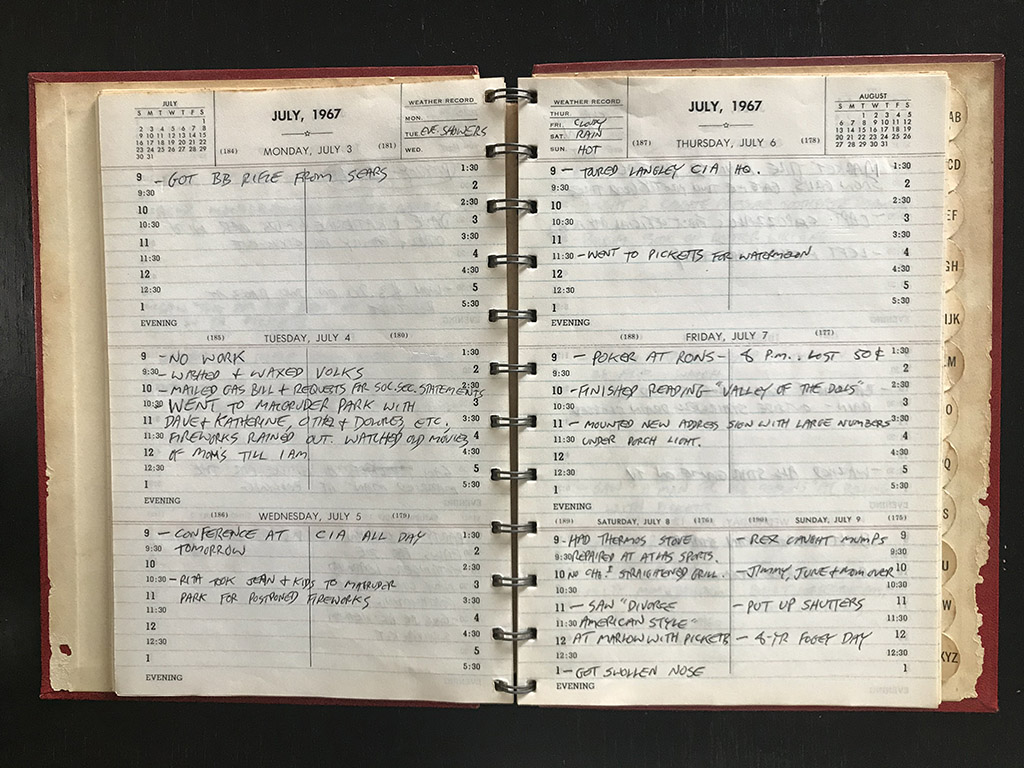 JULY
S M T W T F S
1
2 3 4 5 6 7 8
9 10 11 12 13 14 15
16 17 18 19 20 21 22
23 24 25 26 27 28 29
30 31
JULY, 1967
(184) MONDAY, JULY 3 (181)
WEATHER RECORD
MON.
TUE. EVE. SHOWERS
WED.
9 - GOT BB RIFLE FROM SEARS 1:30
9:30 2
10 2:30
10:30 3
11 3:30
11:30 4
12 4:30
12:30 5
1 5:30
EVENING
(185) TUESDAY, JULY 4 (180)
9 - NO WORK 1:30
9:30 - WASHED & WAXED VOLKS 2
10 - MAILED GAS BILL & REQUESTS FOR SOC. SEC. STATEMENTS 2:30
10:30 WENT TO MAGRUDER PARK WITH 3
11 DAVE & KATHERINE, OTHA & DOLORES, ETC. 3:30
11:30 FIREWORKS RAINED OUT. WATCHED OLD MOVIES 4
12 OF MOMS TILL 1 AM 4:30
12:30 5
1 5:30
EVENING
(186) WEDNESDAY, JULY 5 (179)
9 - CONFERENCE AT CIA ALL DAY 1:30
9:30 TOMORROW 2
10 2:30
10:30 - RITA TOOK JEAN & KIDS TO MAGRUDER 3
11 PARK FOR POSTPONED FIREWORKS 3:30
11:30 4
12 4:30
12:30 5
1 5:30
EVENING
WEATHER RECORD
THUR.
FRI. CLOUDY
SAT. RAIN
SUN. HOT
JULY, 1967
(187) THURSDAY, JULY 6 (178)
AUGUST
S M T W T F S
1 2 3 4 5
6 7 8 9 10 11 12
13 14 15 16 17 18 19
20 21 22 23 24 25 26
27 28 29 30 31
9 - TOURED LANGLEY CIA HQ. 1:30
9:30 2
10 2:30
10:30 3
11 3:30
11:30 - WENT TO PICKETTS FOR WATERMELON 4
12 4:30
12:30 5
1 5:30
EVENING
(188) FRIDAY, JULY 7 (177)
9 - POKER AT RONS - 8 P.M.. LOST 50¢ 1:30
9:30 2
10 - FINISHED READING "VALLEY OF THE DOLLS" 2:30
10:30 3
11 - MOUNTED NEW ADDRESS SIGN WITH LARGE NUMBERS 3:30
11:30 UNDER PORCH LIGHT. 4
12 4:30
12:30 5
1 5:30
EVENING
(189) SATURDAY, JULY 8 (176)
9 - HAD THERMOS STOVE
9:30 REPAIRED AT ATLAS SPORTS.
10 NO CHG. STRAIGHTENED GRILL.
10:30
11 - SAW "DIVORCE
11:30 AMERICAN STYLE"
12 AT MARLOW WITH PICKETTS
12:30
1 - GOT SWOLLEN NOSE
EVENING
(190) SUNDAY, JULY 9 (175)
- REX CAUGHT MUMPS 9
9:30
- JIMMY, JUNE & MOM OVER 10
10:30
- PUT UP SHUTTERS 11
11:30
- 8-YR FOGEY DAY 12
12:30
1
AB
CD
EF
GH
IJK
M
O
Q
S
U
W
XYZ